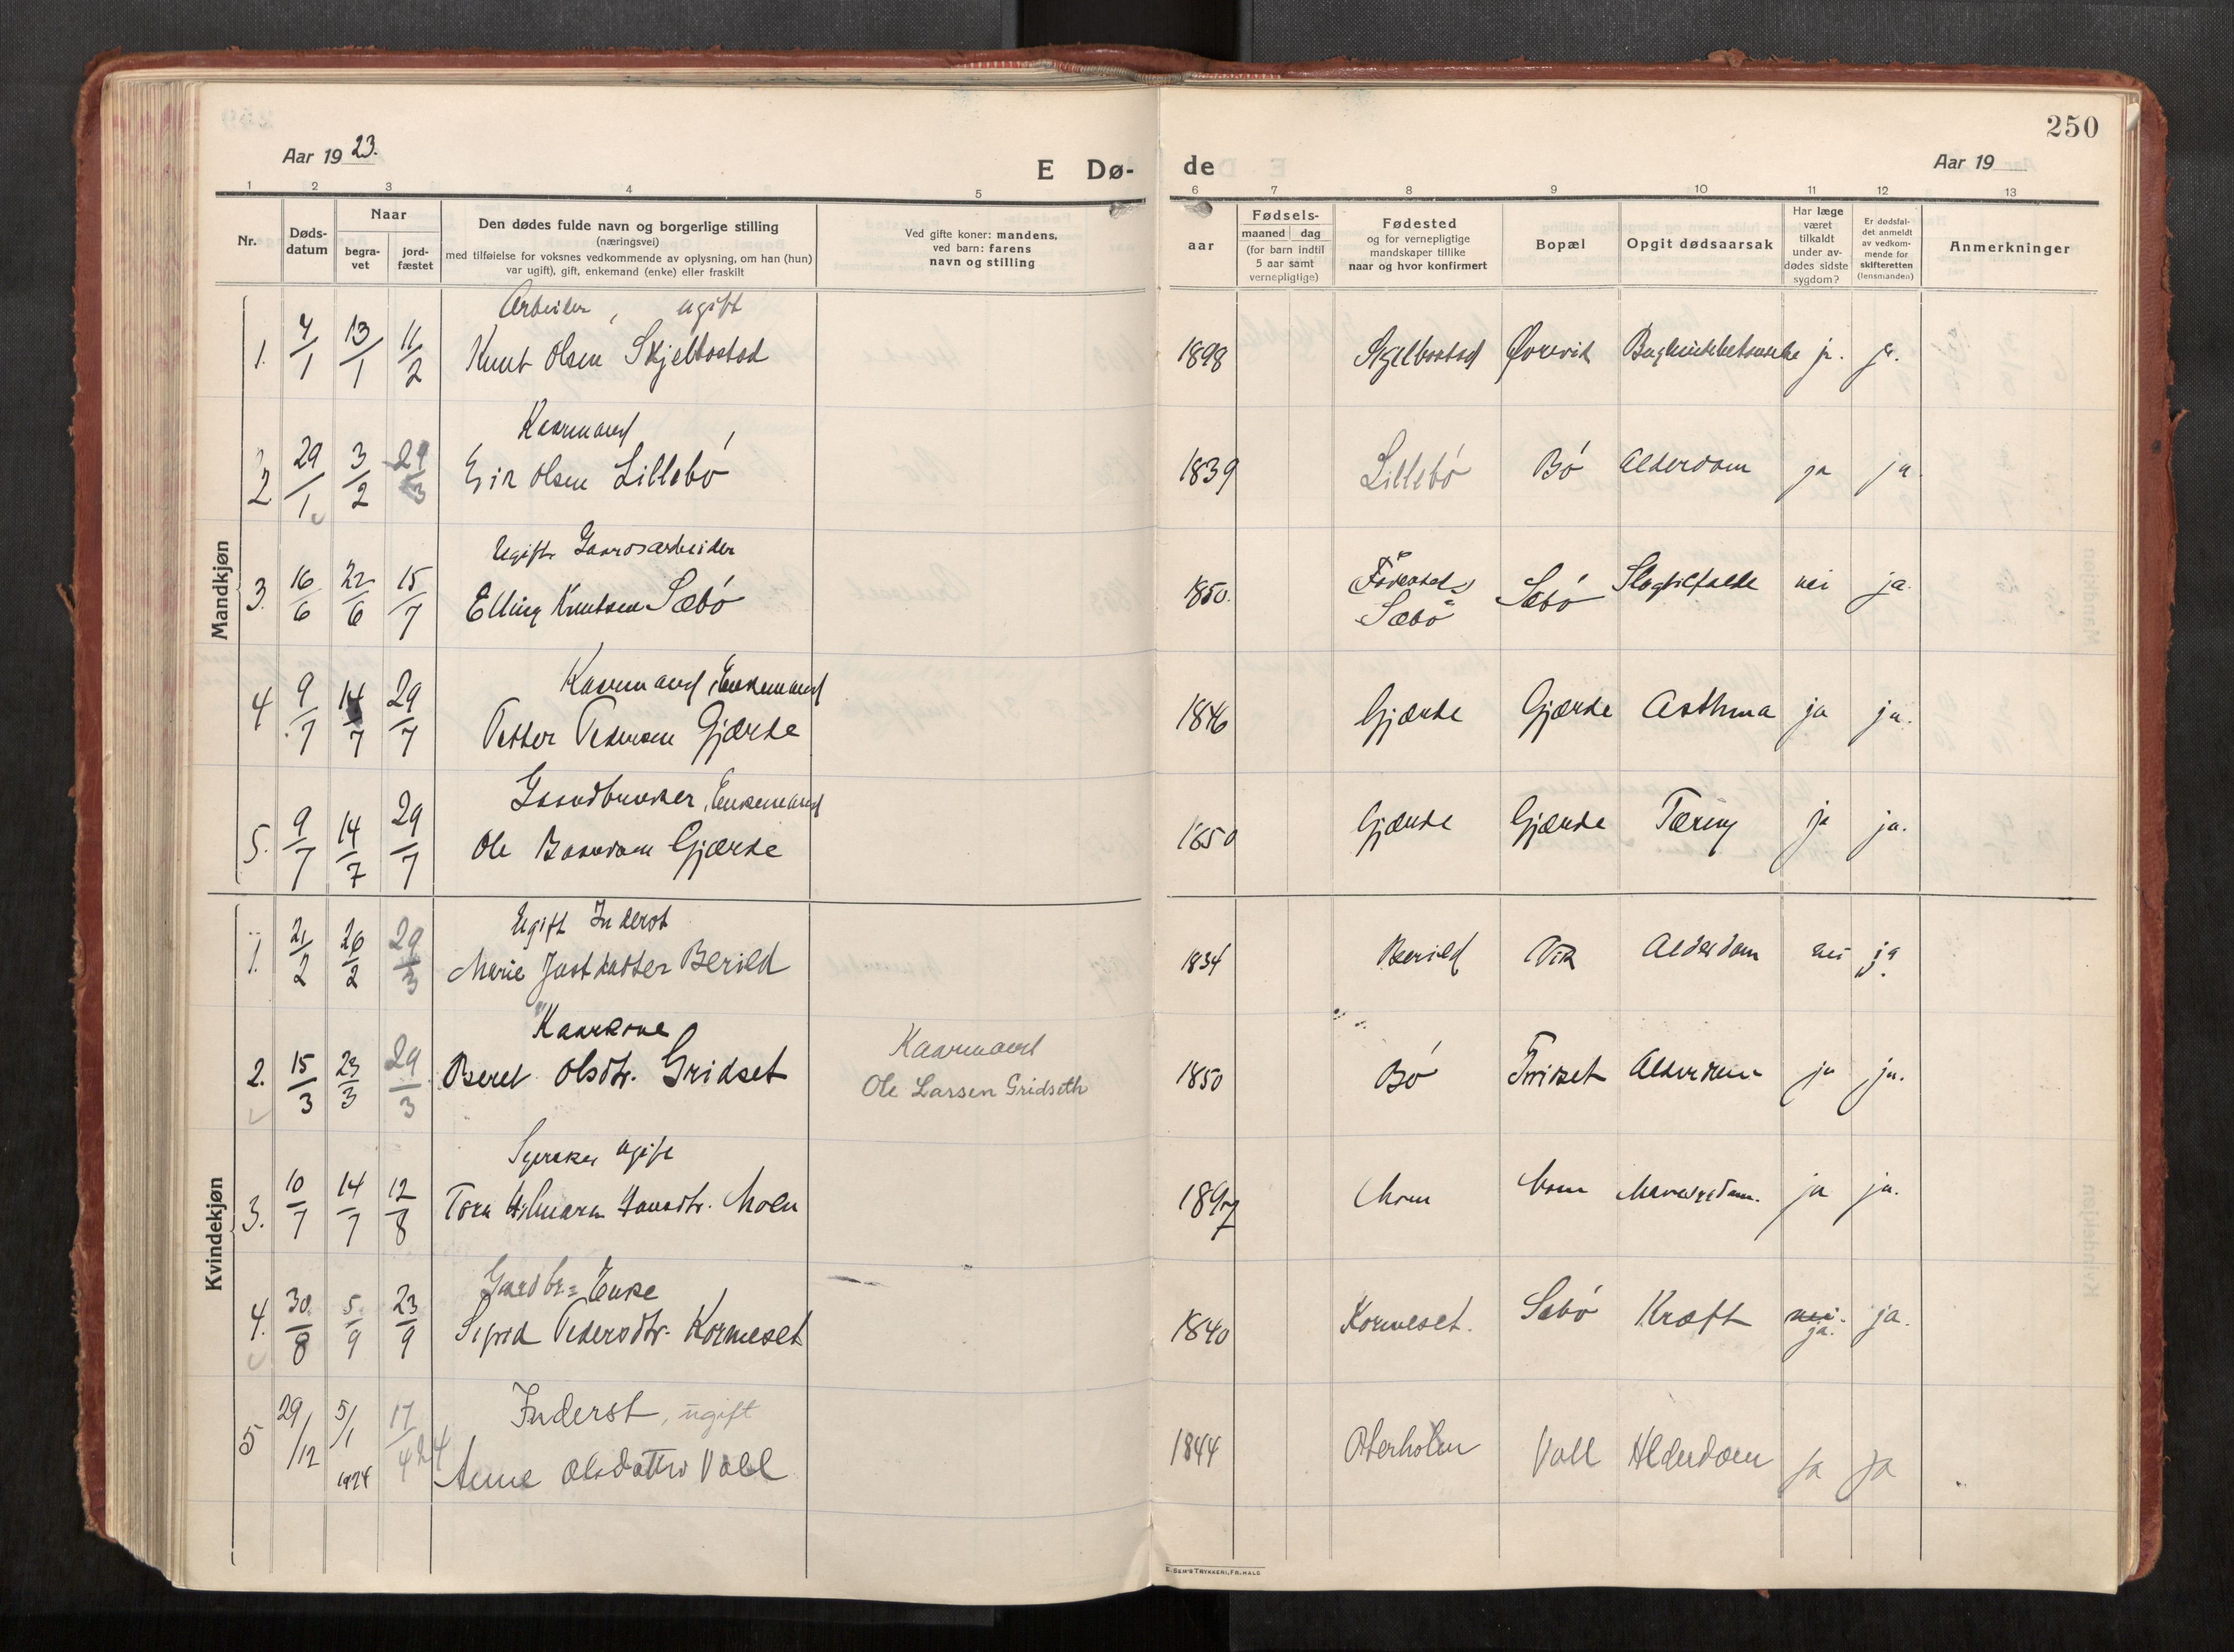 250
Aar 19 23.
E Dø- de
Aar 19
1 2 3 4 5 6 7 8 9 10 11 12 13
Nr.
Døds-
datum
Naar
begra-
vet
jord-
fæstet
Den dødes fulde navn og borgerlige stilling
(næringsvei)
med tilføielse for voksnes vedkommende av oplysning, om han (hun)
var ugift), gift, enkemand (enke) eller fraskilt
Ved gifte koner: mandens,
ved barn: farens
navn og stilling
aar
Fødsels-
maaned dag
(for barn indtil
5 aar samt
vernepligtige)
Fødested
og for vernepligtige
mandskaper tillike
naar og hvor konfirmert
Bopæl
Opgit dødsaarsak
Har læge
været
tilkaldt
under av-
dødes sidste
sygdom?
Er dødsfal-
det anmeldt
av vedkom-
mende for
skifteretten
(lensmanden)
Anmerkninger
Mandkjøn
Arbeider, ugift
1. 4/1 13/1 11/2 Knut Olsen Skjelbostad 1898 Skjelbostad Ørevik ja. ja.
Kaarmand
2 29/1 3/2 29/3 Eirik Olsen Lillebó 1839 Lillebó Bó Alderdom ja ja.
Ugift Gaardsarbeider
3. 16/6 22/6 15/7 Elling Knutsen Sæbó 1850. Sæbó Sæbó Slagtilfælde nei ja.
Kaarmand, Enkemand
4 9/7 14/7 29/7 Petter Pedersen Gjærde 1846 Gjærde Gjærde Asthma ja ja.
Gaardbruker, Enkemand
5. 9/7 14/7 29/7 Ole Gjærde 1850 Gjærde Gjærde Tæring ja ja.
Kvindekjøn
Ugift Inderst
1. 21/2 26/2 29/3 Marie Jostdatter Berild 1834 Berild Vik Alderdom nei ja.
Kaarkone
2. 15/3 23/3 29/3 Beret Olsdtr. Gridset
Kaarmand
Ole Larsen Gridseth
1850 Bó Gridset Alderdom ja ja.
Syerske ugift
3. 10/7 14/7 12/8 Tora Hansdtr. Moen 1897 Moen Moen ja ja.
Gaardbr= Enke
4. 30/8 5/9 23/9 Sigrid Pedersdtr. Kormeset 1840 Kormeset. Sæbó Kræft nei. ja. ja.
Inderst, ugift
5 29/12 5/1 1924 17/4 24 Anne Olsdatter Voll 1844 Oterholm Voll Alderdom ja ja
E. SEM'S TRYKKERI, FR.HALD